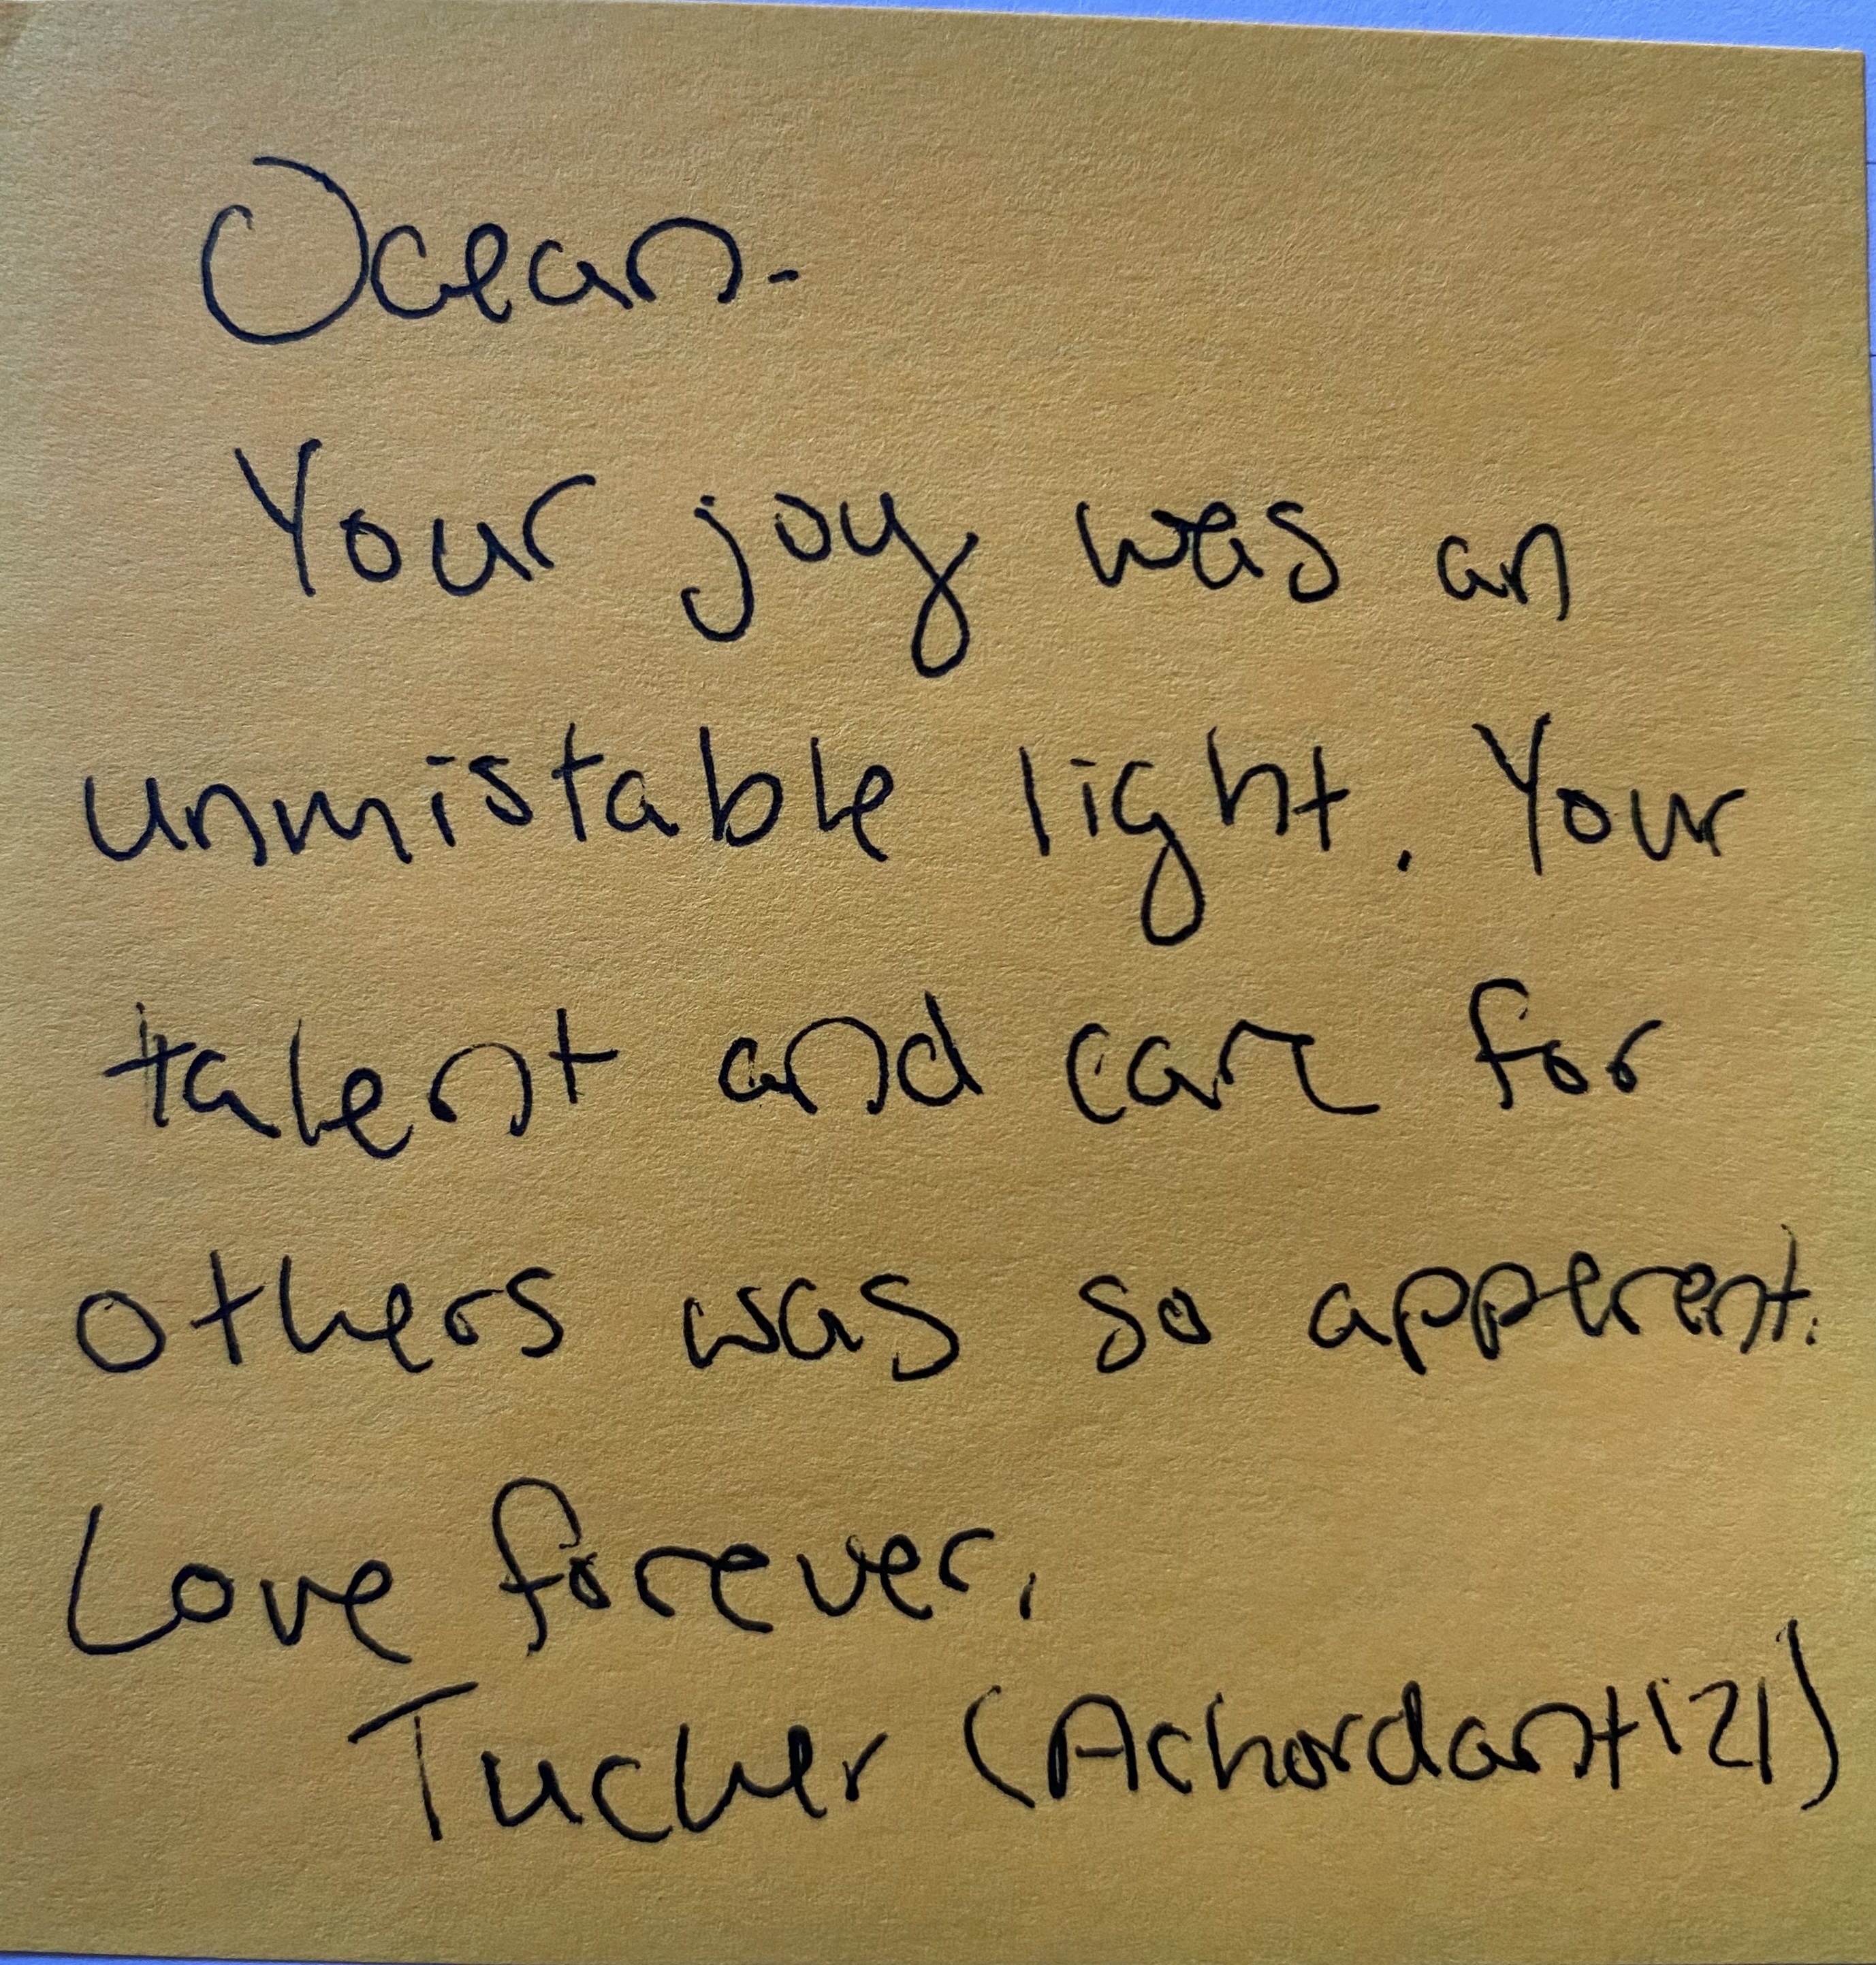 Ocean-
Your joy was an
unmistable light. Your
talent and care for
others was so apperent.
Love forever,
Tucker (Achordant '21)